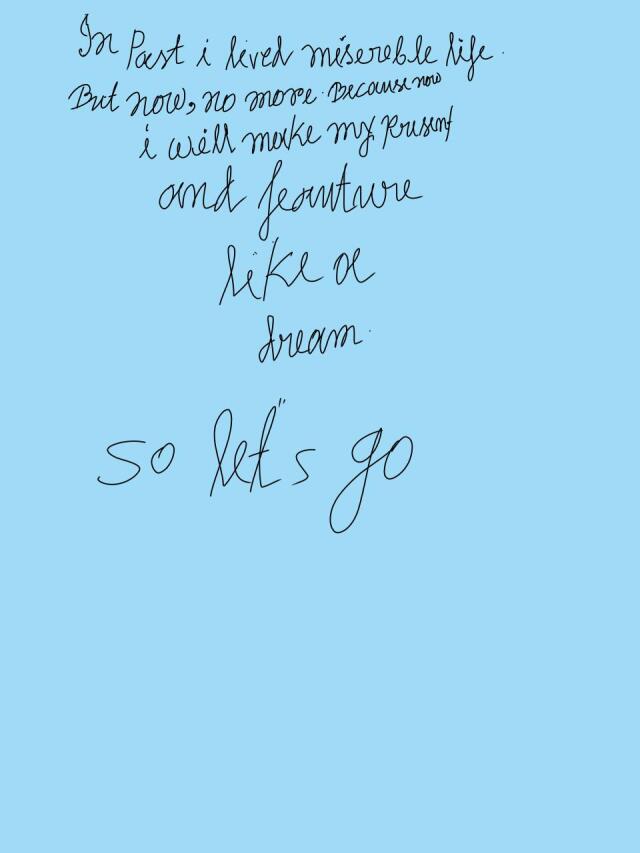 In Past i lived misereble life.
But now, no more. Because now
i will make my Prusent
and feauture
like a
dream.
so let's go